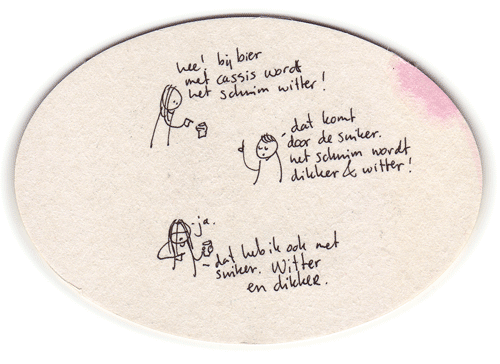 hee! bij bier
met cassis wordt
het schuim witter!
dat komt
door de suiker.
het schuim wordt
dikker & witter!
ja.
dat heb ik ook met
suiker. Witter
en dikker.